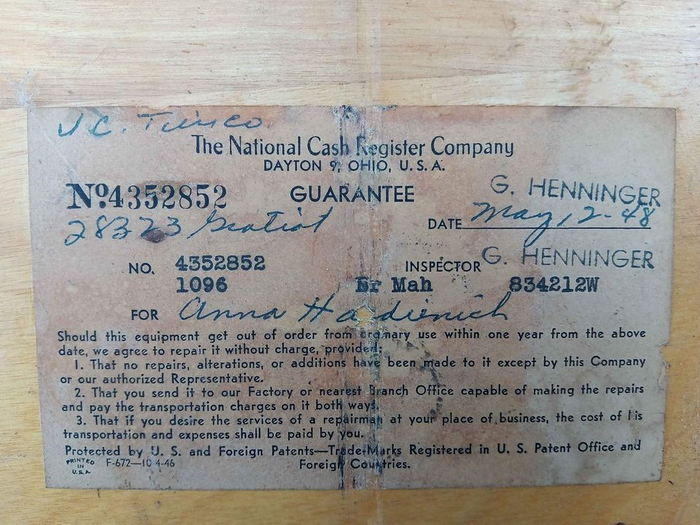 J.C.
The National Cash Register Company
DAYTON 9, OHIO, U.S.A.
Nº 4352852 GUARANTEE G. HENNINGER
28323 Gratiot DATE May, 12-48
NO. 4352852 INSPECTOR G. HENNINGER
1096 Br Mah 834212W
FOR Anna
Should this equipment get out of order from ordinary use within one year from the above
date, we agree to repair it without charge, provided:
1. That no repairs, alterations, or additions have been made to it except by this Company
or our authorized Representative.
2. That you send it to our Factory or nearest Branch Office capable of making the repairs
and pay the transportation charges on it both ways.
3. That if you desire the services of a repairman at your place of business, the cost of his
transportation and expenses shall be paid by you.
Protected by U. S. and Foreign Patents—Trade-Marks Registered in U. S. Patent Office and
Foreign Countries.
PRINTED
IN
U.S.A.
F-672—10 4-46